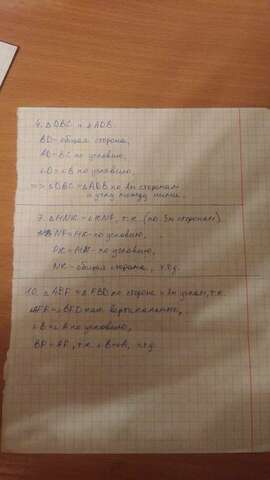 4. △DBC и △ADB
BD - общая сторона,
AD = BC по условию,
∠D = ∠B по условию
=> △DBC = △ADB по 2м сторонам
и углу между ними.
7. △ANK = △KNF, т.к. (по 3м сторонам)
NF = AK - по условию,
- по условию,
NK - общая сторона, ч.т.д.
10. △ABF = △FBD по стороне и 2м углам, т.к.
как вертикальные,
по условию,
BF = , т.к. ч.т.д.